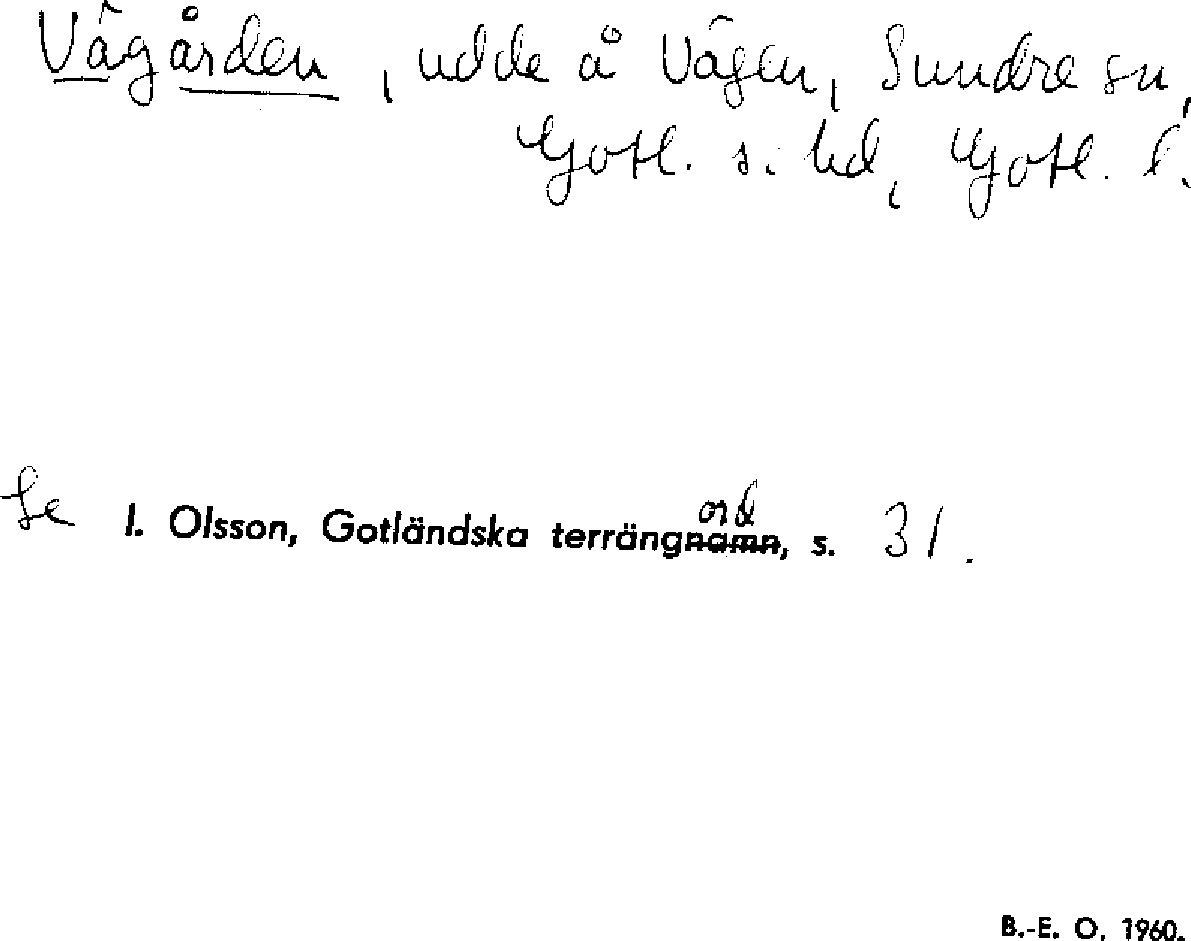 Vâgården, udde å Vâgen, Sundre sn,
Gotl. s. hd, Gotl. l.
Se I. Olsson, Gotländska terrängnamn, s. 31.
ord
B.-E. O. 1960.